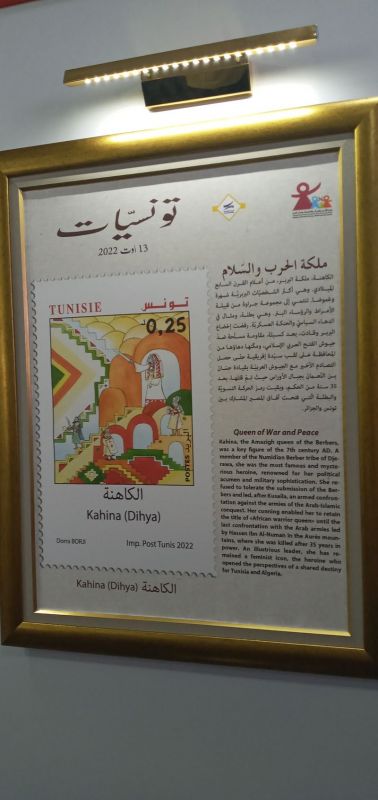 تونسيّات
13 أوت 2022
TUNISIE تونس
0,25
POSTES البريد
الكاهنة
Kahina (Dihya)
Dorra BORJI Imp. Post Tunis 2022
Kahina (Dihya) الكاهنة
ملكة الحرب والسّلام
الكاهنة، ملكة البربر، من أعلام القرن السابع
للميلادي، وهي أكثر الشخصيّات البربريّة شهرة
وغموضا. تنتمي إلى مجموعة جراوة من قبيلة
الدهاء السياسي والحنكة العسكريّة. رفضت إخضاع
البربر وقادت، بعد كسيلة، مقاومة مسلّحة ضدّ
جيوش الفتح العربي الإسلامي. ومكّنها دهاؤها من
المحافظة على لقب سيّدة إفريقية حتّى حصل
التصادم الأخير مع الجيوش العربيّة بقيادة حسّان
بن النّعمان بجبال الأوراس حيث تمّ قتلها، بعد
35 سنة من الحكم. وبقيت رمز الحركة النسويّة
والبطلة التي فتحت آفاق المصير المشترك بين
تونس والجزائر.
Queen of War and Peace
Kahina, the Amazigh queen of the Berbers,
was a key figure of the 7th century AD. A
member of the Numidian Berber tribe of Dje-
rawa, she was the most famous and myste-
rious heroine, renowned for her political
acumen and military sophistication. She re-
fused to tolerate the submission of the Ber-
bers and led, after Kusaila, an armed confron-
tation against the armies of the Arab-Islamic
conquest. Her cunning enabled her to retain
the title of «African warrior queen» until the
last confrontation with the Arab armies led
by Hassen Ibn Al-Numan in the Aurès moun-
tains, where she was killed after 35 years in
power. An illustrious leader, she has re-
mained a feminist icon, the heroine who
opened the perspectives of a shared destiny
for Tunisia and Algeria.